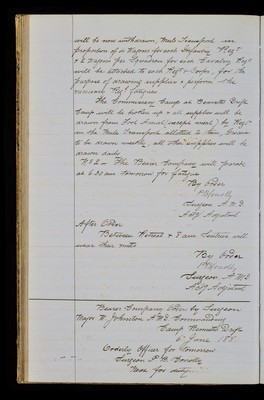 will be now withdrawn, Mule Transport in
proportion of 2 Wagons for each Infantry Regt
& 2 Wagons per Squadron for each Cavalry Regt
will be attached to each Regt & Corps, for the
purpose of drawing supplies & perform the
necessary Regt fatigues
The Commissary Camp at Bennets Drift
Camp will be broken up & all supplies will be
drawn from Fort Amiel, except meal by Regts
in the Mule Transport allotted to them
to be drawn weekly, all other supplies will be
drawn daily
No 2 - The Bearer Company will parade
at 6.30 am tomorrow for fatigue
By Order
Surgeon A.M.D.
Adjt
After Order
Between Retreat & 8 am Sentries will
wear their
By Order
Surgeon A.M.D.
Bearer Company Order by Surgeon
Major W. Johnston A.M.D. Commanding
Camp Bennets Drift
6 June 188
Orderly Officer for tomorrow
Surgeon
None for duty